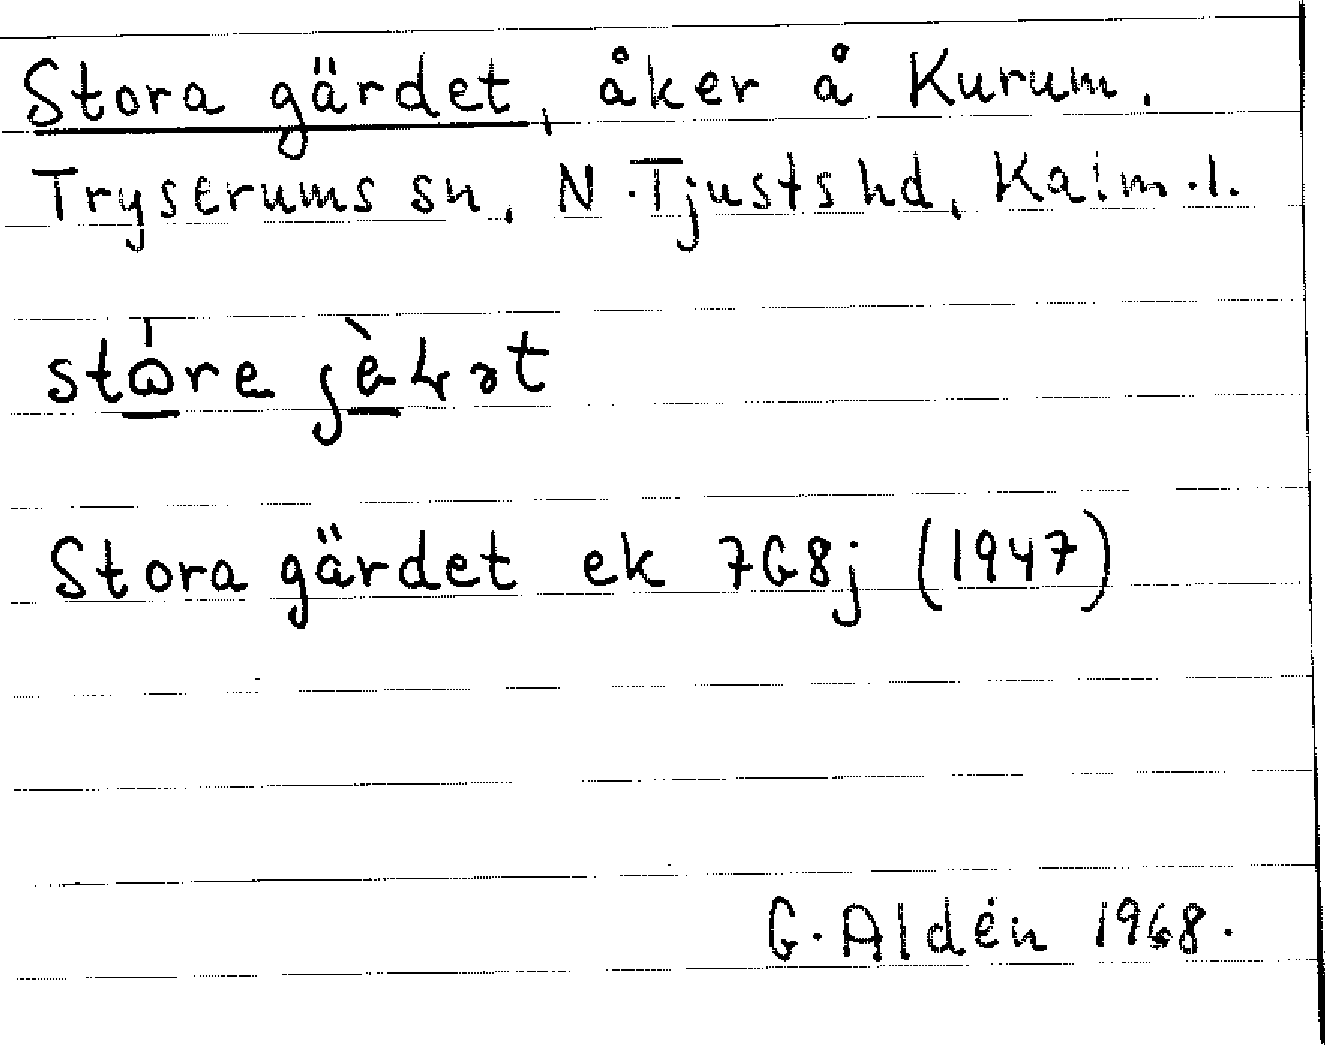 Stora gärdet, åker å Kurum.
Tryserums sn, N. Tjusts hd, Kalm.l.
Stora gärdet ek 7G8j (1947)
G. Aldén 1968.